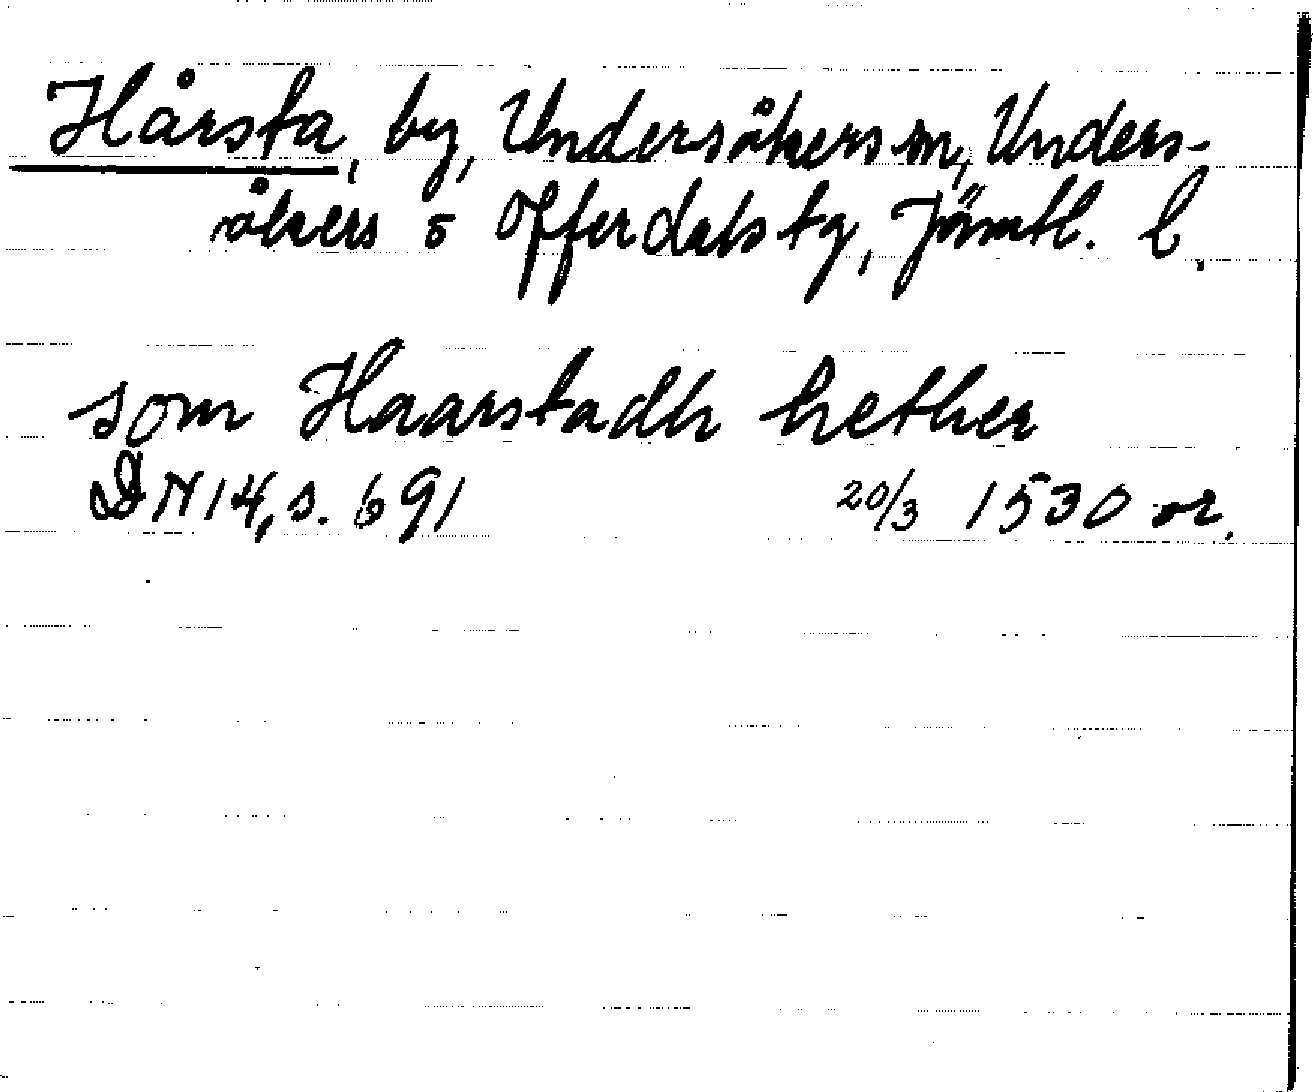 Hårsta, by, Undersåkers sn, Unders-
åkers o Offerdals tg, Jämtl. l.
som Haarstadh hether
DN 14, s. 691 20/3 1530 or.